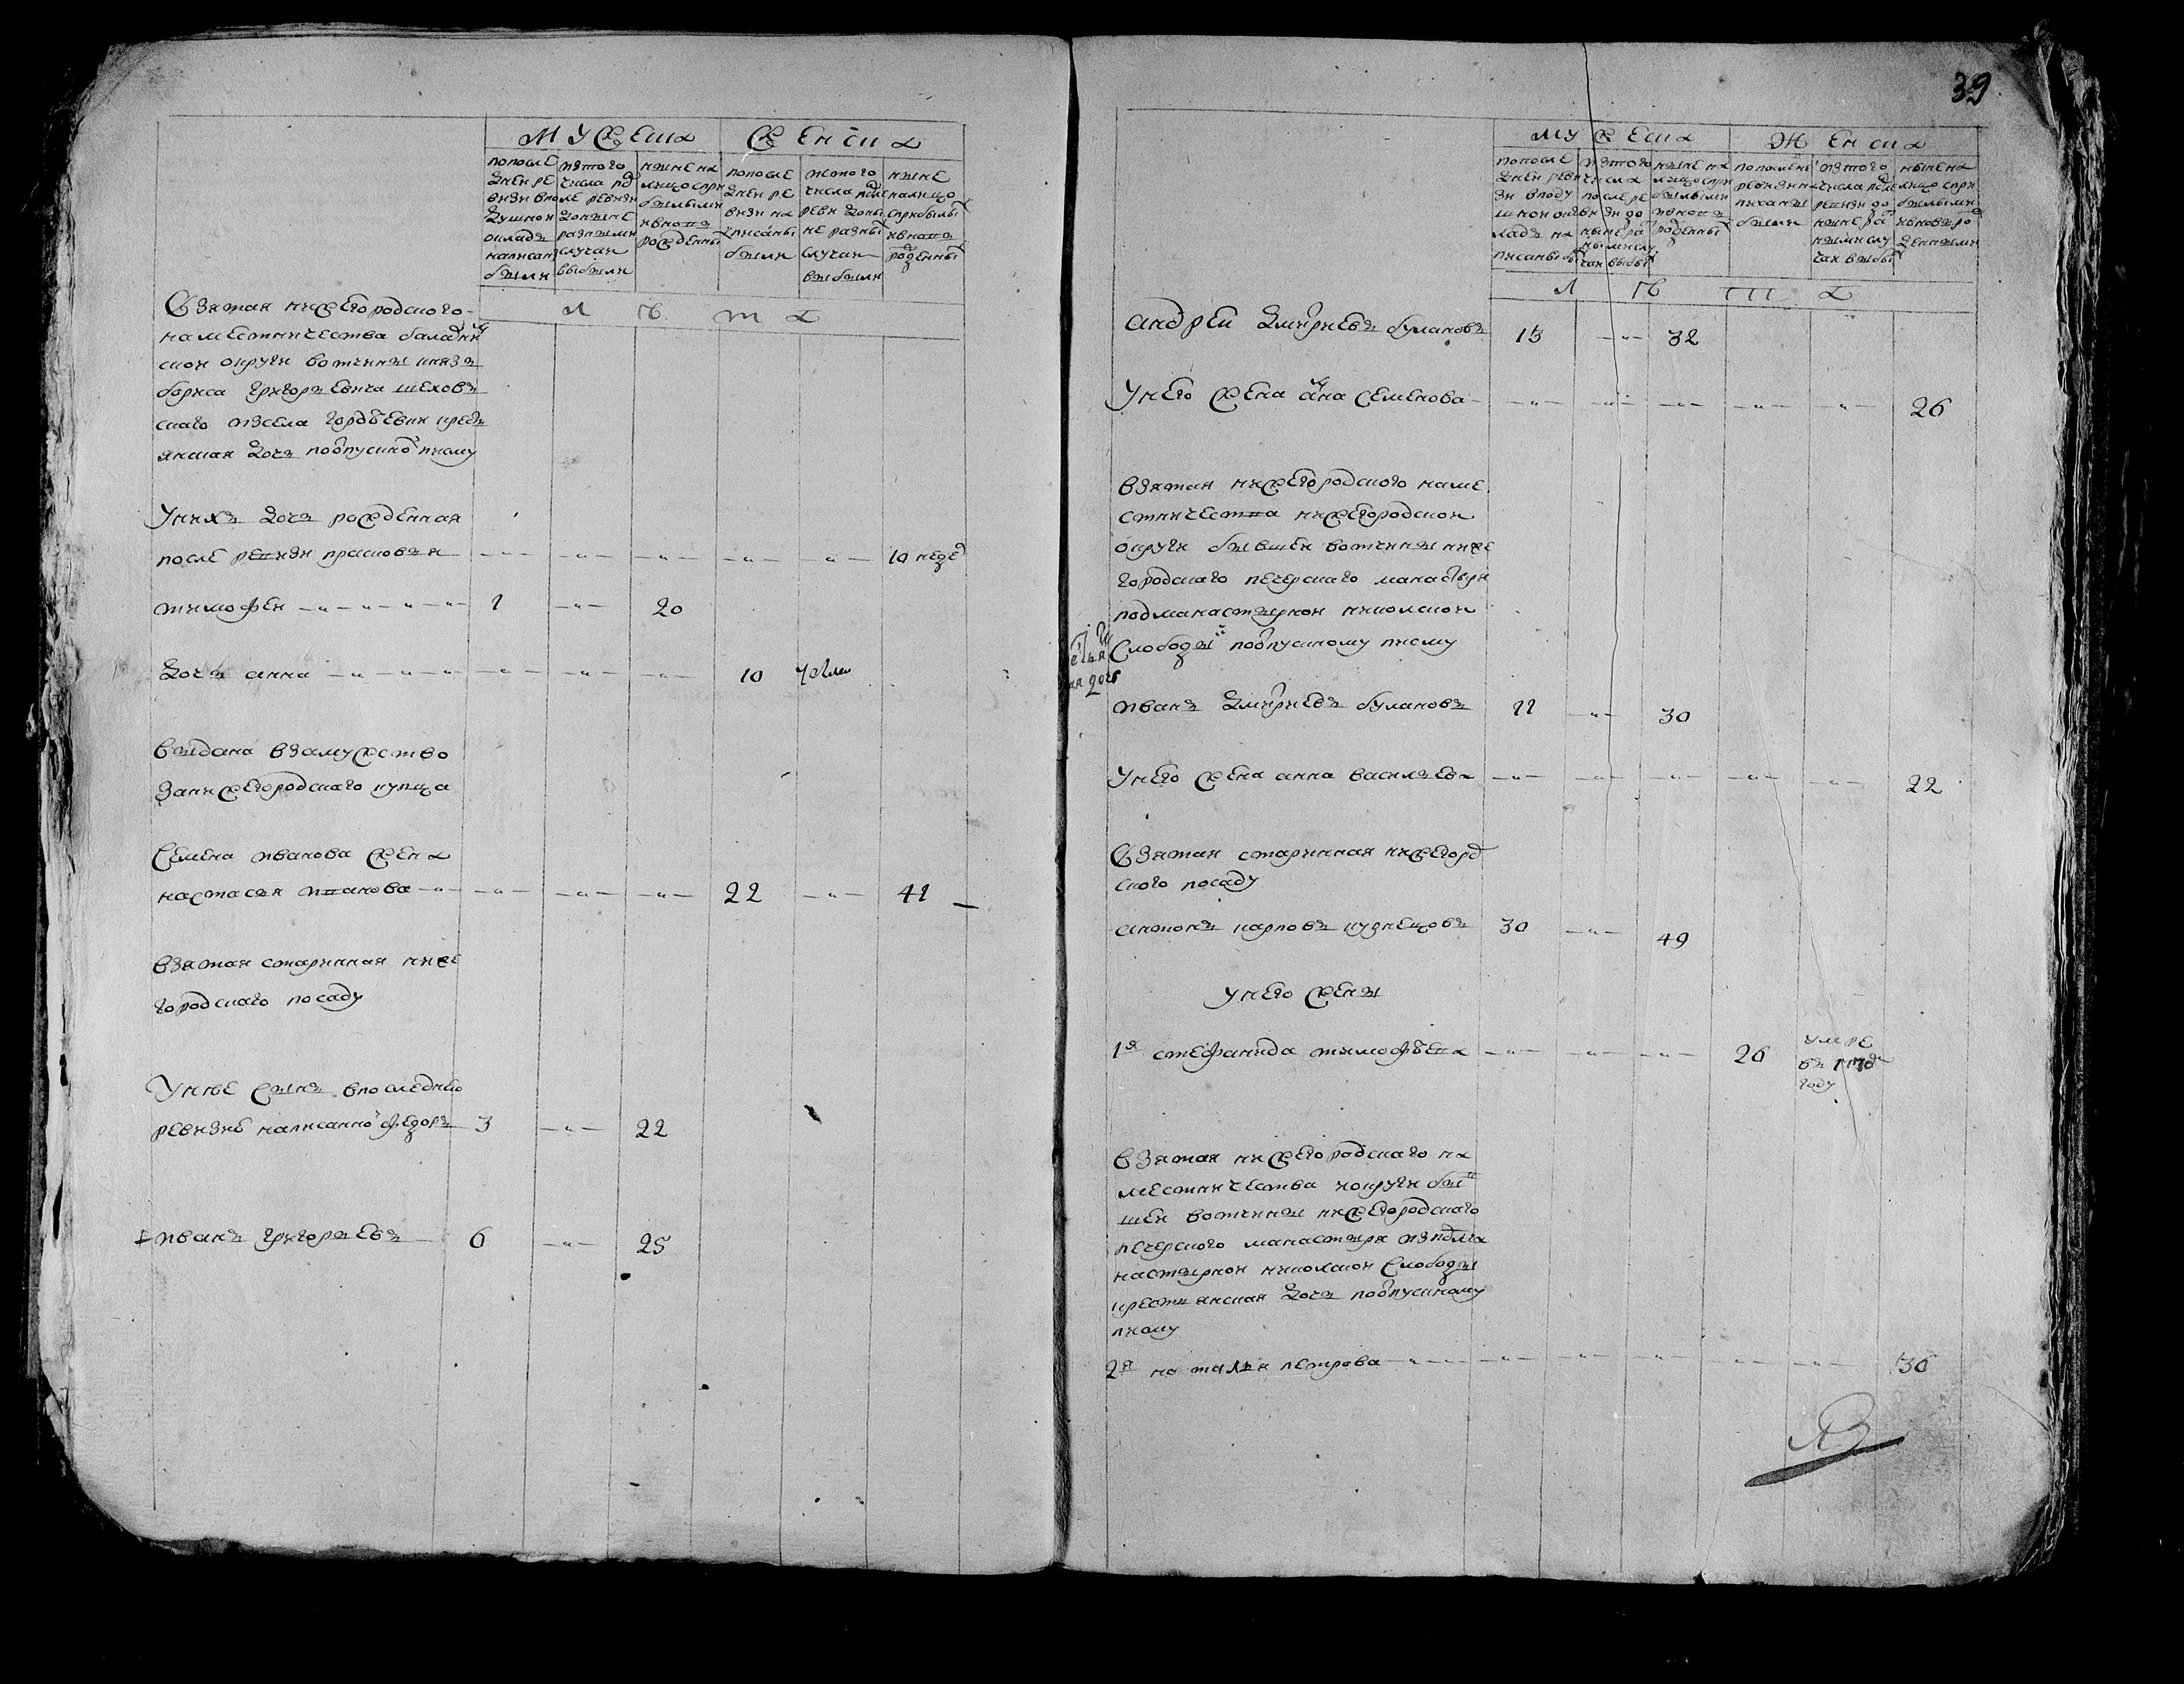 мужеска
женска
по после
дней ре
визи в по
душном
окладе
написан
были
из того
числа по
ле ревизи
до ныне
разными
случаи
выбыли
ныне на
лицо с при
былыми
и вновь
рожденны
по после
дней ре
визи на
писаны
были
из того
числа после
реви доны
не разны
случаи
выбыли
ныне
на лицо
с прибылы
и вновь
рожденны
лета
Взятая нижегородского
наместничества балахнин
ской округи вотчины князя
бориса григорьевича шехов
ского из села гордѣевки крестъ
янская дочь по отпускному писму
У них дочь рожденная
после ревизи прасковья 10 недел
тимофей 1 20
дочь анна 10 умре
выдана в замужство
за нижегородского купца
Семена иванова жена
настасья иванова 22 41
взятая старинная ниже
городскаго посаду
У нее сынъ в последнею
ревизию написанной федоръ 3 22
иванъ григорьевъ 6 25
39
мужеска
женска
по после
дней реви
зи в поду
шной ок
ладъ на
писаны бы
из того
числа
после ре
визи до
ныне ра
ными слу
чаи выбы
ныне на
лицо с при
былыми
и вновь
рожденны
по последне
ревизи на
писаны
были
из того
числа после
ревизи до
ныне ра
ными слу
чаи выбы
ныне на
лицо с при
былыми
и вновь ро
жденными
лета
андрей дмитриевъ булановъ 13 32
У него жена анна семенова 26
взятая нижегородского наме
стничества нижегородской
округи бывшей вотчины ниже
городскаго печерскаго манастыря
подманастырной никольской
Слободы по отпускному писму
иванъ дмитриевъ булановъ 11 30
У него жена анна васильева 22
Взятая старинная нижегород
ского посаду
антонъ карповъ кузнецовъ 30 49
У него жены
1я стефанида тимофѣева 26 умре
въ 1770м
году
взятая нижегородскаго на
местничества и округи бы
шей вотчины нижегородскаго
печерского манастыря из подма
настырной никольской Слободы
крестьянская дочь по отпускному
писму
2я наталья петрова 30